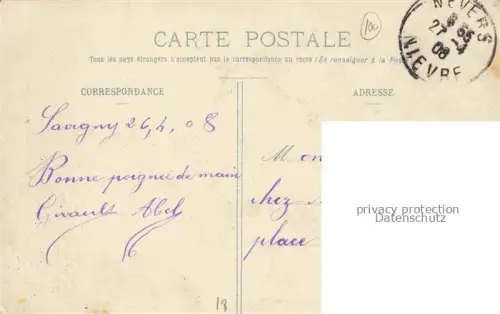 NEVERS
6 35
27 -4
08
NIEVRE
100
CARTE POSTALE
Tous les pays étrangers n'acceptent pas la correspondance au recto (Se renseigner à la Poste
CORRESPONDANCE
ADRESSE
Savigny 26, 4, 08
Bonne poignée de main
Girault Abel
Mon
chez
place
privacy protection
Datenschutz
18